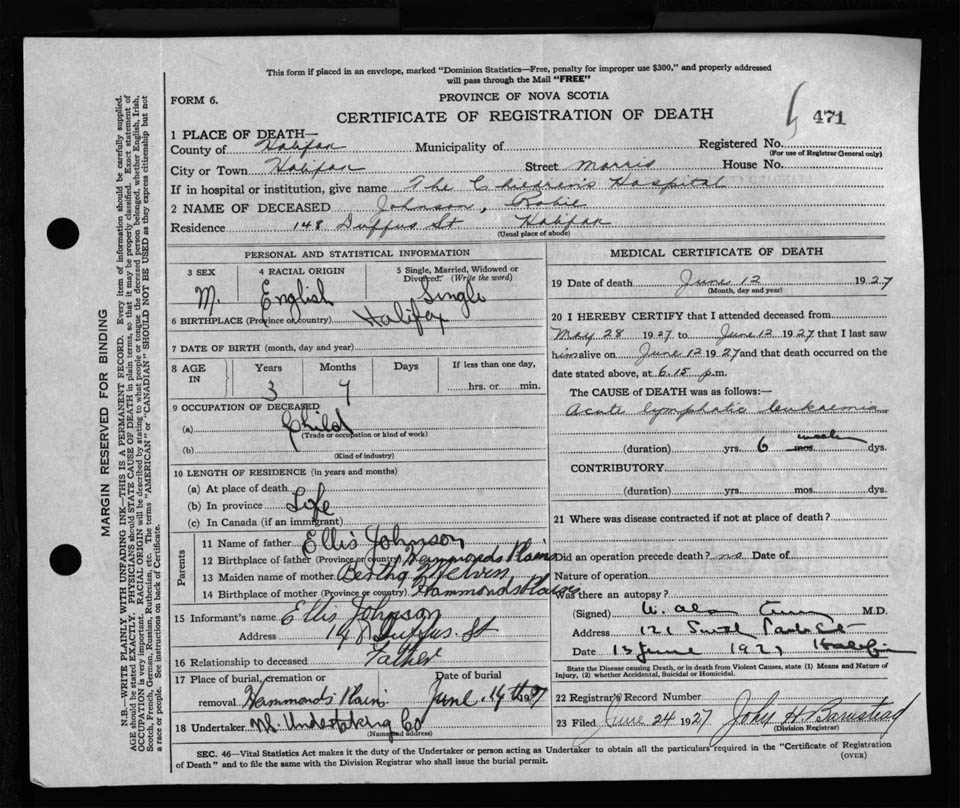 This form if placed in an envelope, marked "Dominion Statistics—Free, penalty for improper use $300," and properly addressed
will pass through the Mail "FREE"
FORM 6.
PROVINCE OF NOVA SCOTIA
CERTIFICATE OF REGISTRATION OF DEATH
471
1 PLACE OF DEATH—
County of Halifax Municipality of Registered No.
(For use of Registrar General only)
City or Town Halifax Street Morris House No.
If in hospital or institution, give name The Children's Hospital
2 NAME OF DECEASED Johnson, Robie
Residence 148 Duffus St Halifax
(Usual place of abode)
PERSONAL AND STATISTICAL INFORMATION
3 SEX 4 RACIAL ORIGIN 5 Single, Married, Widowed or
Divorced. (Write the word)
M. English Single
6 BIRTHPLACE (Province or country) Halifax
7 DATE OF BIRTH (month, day and year)
8 AGE IN Years Months Days If less than one day,
3 9 hrs. or min.
9 OCCUPATION OF DECEASED
(a) Child
(Trade or occupation or kind of work)
(b)
(Kind of industry)
10 LENGTH OF RESIDENCE (in years and months)
(a) At place of death
(b) In province Life
(c) In Canada (if an immigrant)
Parents
11 Name of father Ellis Johnson
12 Birthplace of father (Province or country) Hammonds Plains
13 Maiden name of mother Bertha Melvin
14 Birthplace of mother (Province or country) Hammonds Plains
15 Informant's name Ellis Johnson
Address 148 Duffus. St
16 Relationship to deceased Father
17 Place of burial, cremation or Date of burial
removal Hammonds Plains June 14th 1927
18 Undertaker N.S. Undertaking Co
(Name and address)
MEDICAL CERTIFICATE OF DEATH
19 Date of death June 12 1927
(Month, day and year)
20 I HEREBY CERTIFY that I attended deceased from
May 28 1927 to June 12 1927 that I last saw
him alive on June 12 1927 and that death occurred on the
date stated above, at 6.15 p.m.
The CAUSE of DEATH was as follows:—
Acute lymphatic leukaemia
(duration) yrs. 6 mos. weeks dys.
CONTRIBUTORY
(duration) yrs. mos. dys.
21 Where was disease contracted if not at place of death?
Did an operation precede death? no Date of
Nature of operation
Was there an autopsy?
(Signed) W. Alan M.D.
Address 121 South Park St
Date 13 June 1927 Halifax
State the Disease causing Death, or in death from Violent Causes, state (1) Means and Nature of
Injury, (2) whether Accidental, Suicidal or Homicidal.
22 Registrar's Record Number
23 Filed June 24 1927 John H Barnstead
(Division Registrar)
SEC. 46—Vital Statistics Act makes it the duty of the Undertaker or person acting as Undertaker to obtain all the particulars required in the "Certificate of Registration
of Death" and to file the same with the Division Registrar who shall issue the burial permit.
(OVER)
MARGIN RESERVED FOR BINDING
N.B.—WRITE PLAINLY WITH UNFADING INK—THIS IS A PERMANENT RECORD. Every item of information should be carefully supplied.
AGE should be stated EXACTLY. PHYSICIANS should STATE CAUSE OF DEATH in plain terms, so that it may be properly classified. Exact statement of
OCCUPATION is very important. RACIAL ORIGIN will be described by stating to what people or tongue the deceased person belonged, whether English, Irish,
Scotch, French, German, Russian, Ruthenian, etc. The terms "AMERICAN" or "CANADIAN" SHOULD NOT BE USED as they express citizenship but not
a race or people. See instructions on back of Certificate.